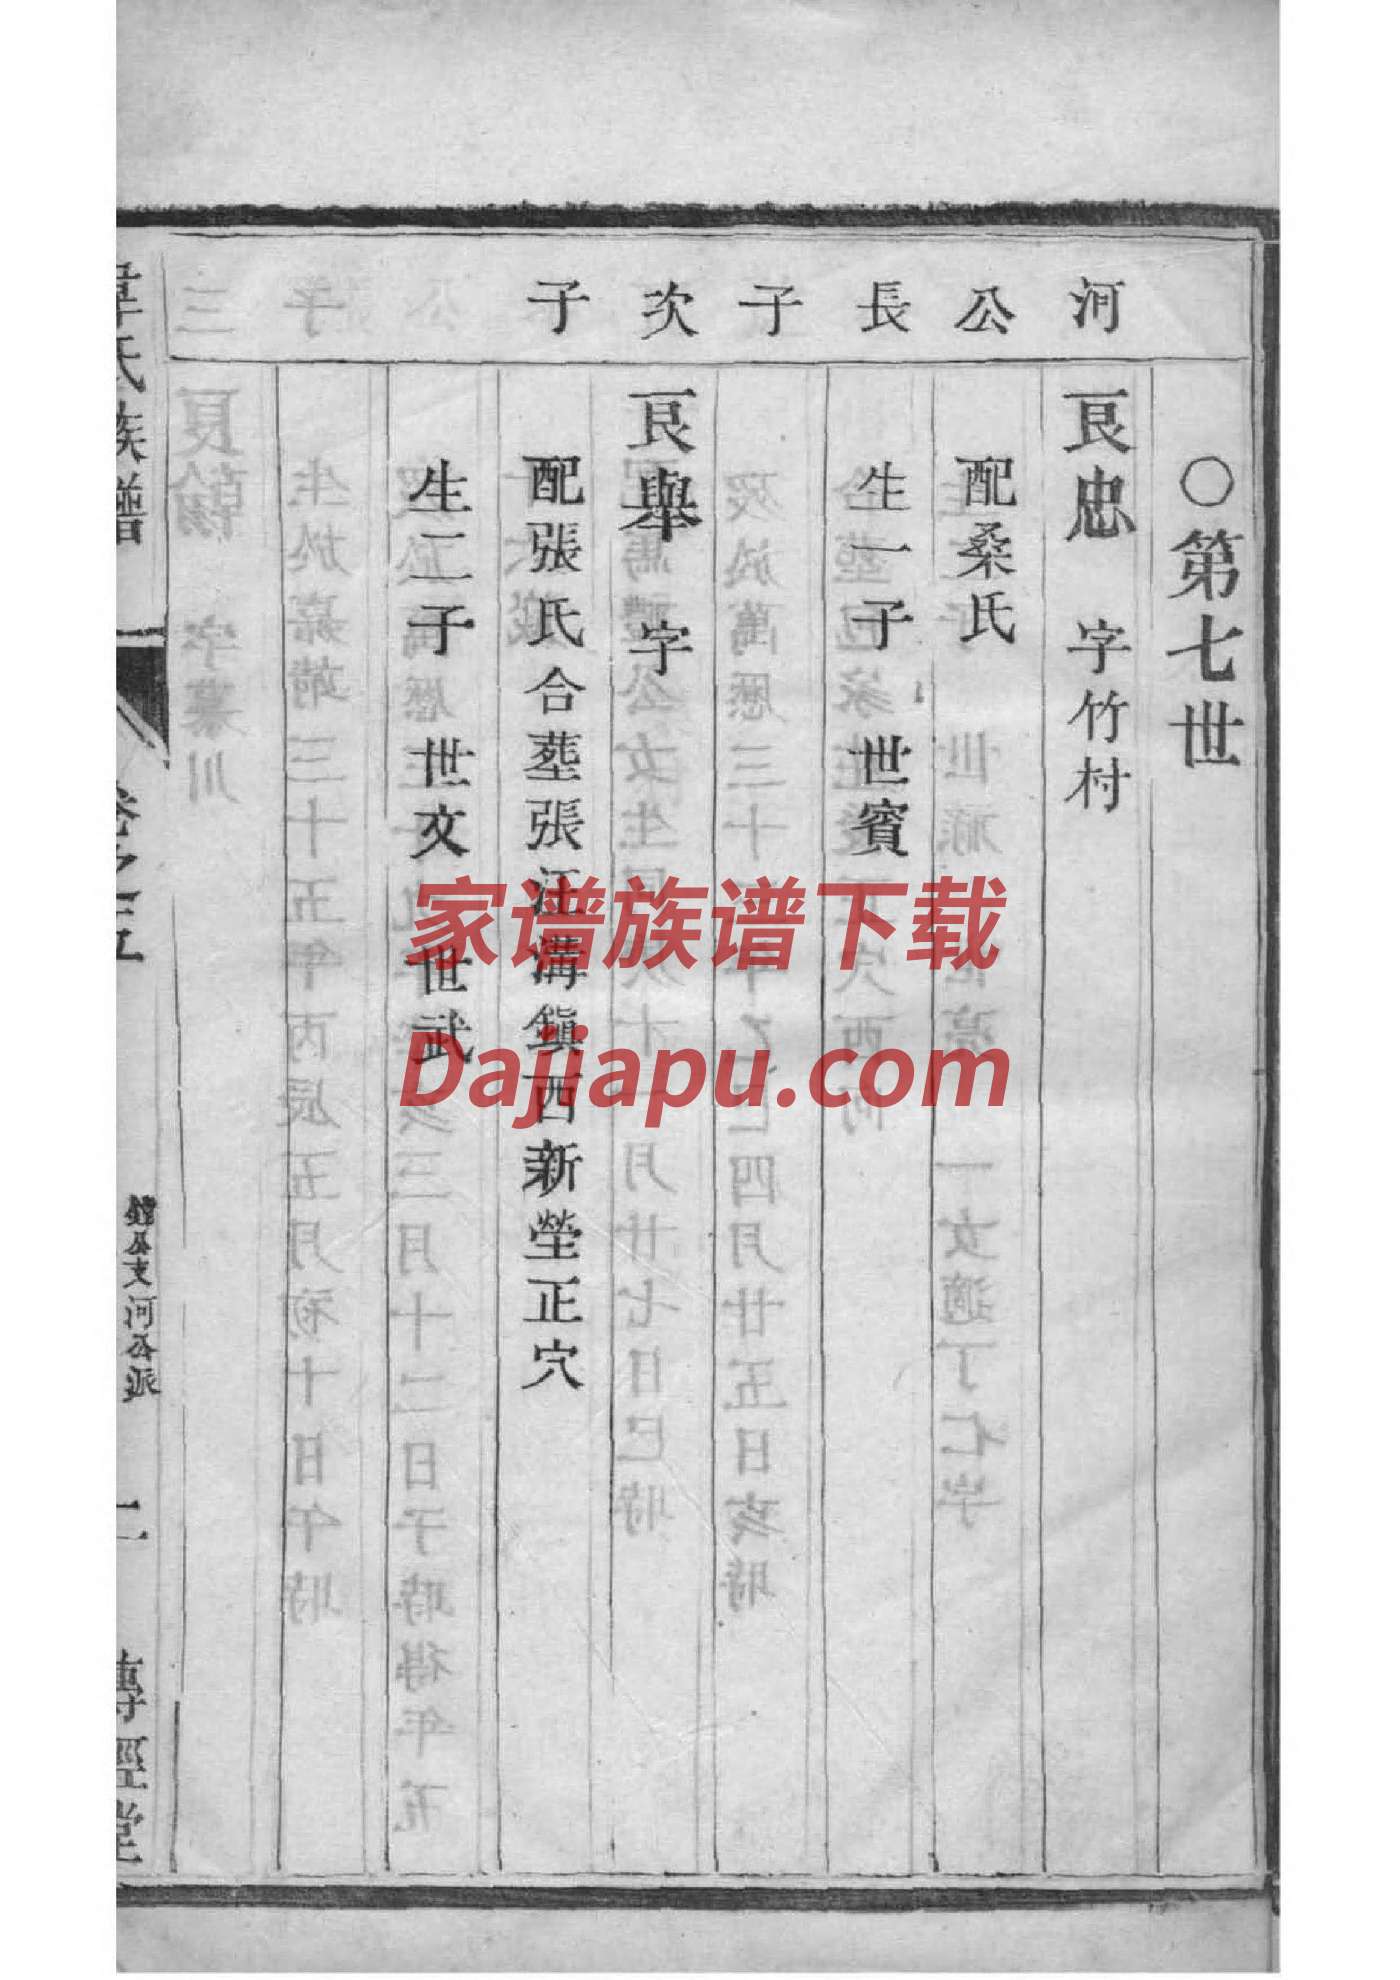 ○第七世
河 良忠 字竹村
公 配桑氏
長 生一子 世賓
子
次 良舉 字
子 配張氏合塟張江溝鎮西新塋正穴
生二子 世文 世武
氏族譜
卷之五
鐘公支河公派
二
傳經堂
家谱族谱下载
Dajiapu.com